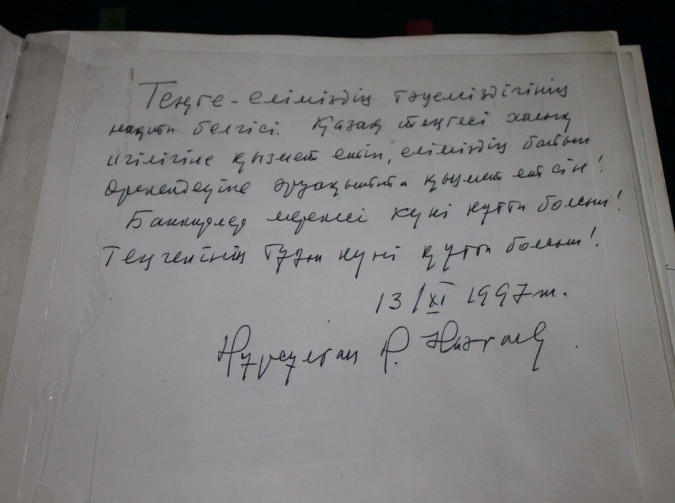 Теңге - еліміздің тәуелсіздігінің
нақты белгісі. Қазақ теңгесі халық
игілігіне қызмет етіп, еліміздің байып
өркендеуіне әрқашанда қызмет етсін!
Банкирлер мерекесі күні құтты болсын!
Теңгенінің туған күні құтты болсын!
13/XI 1997ж.
Нұрсұлтан